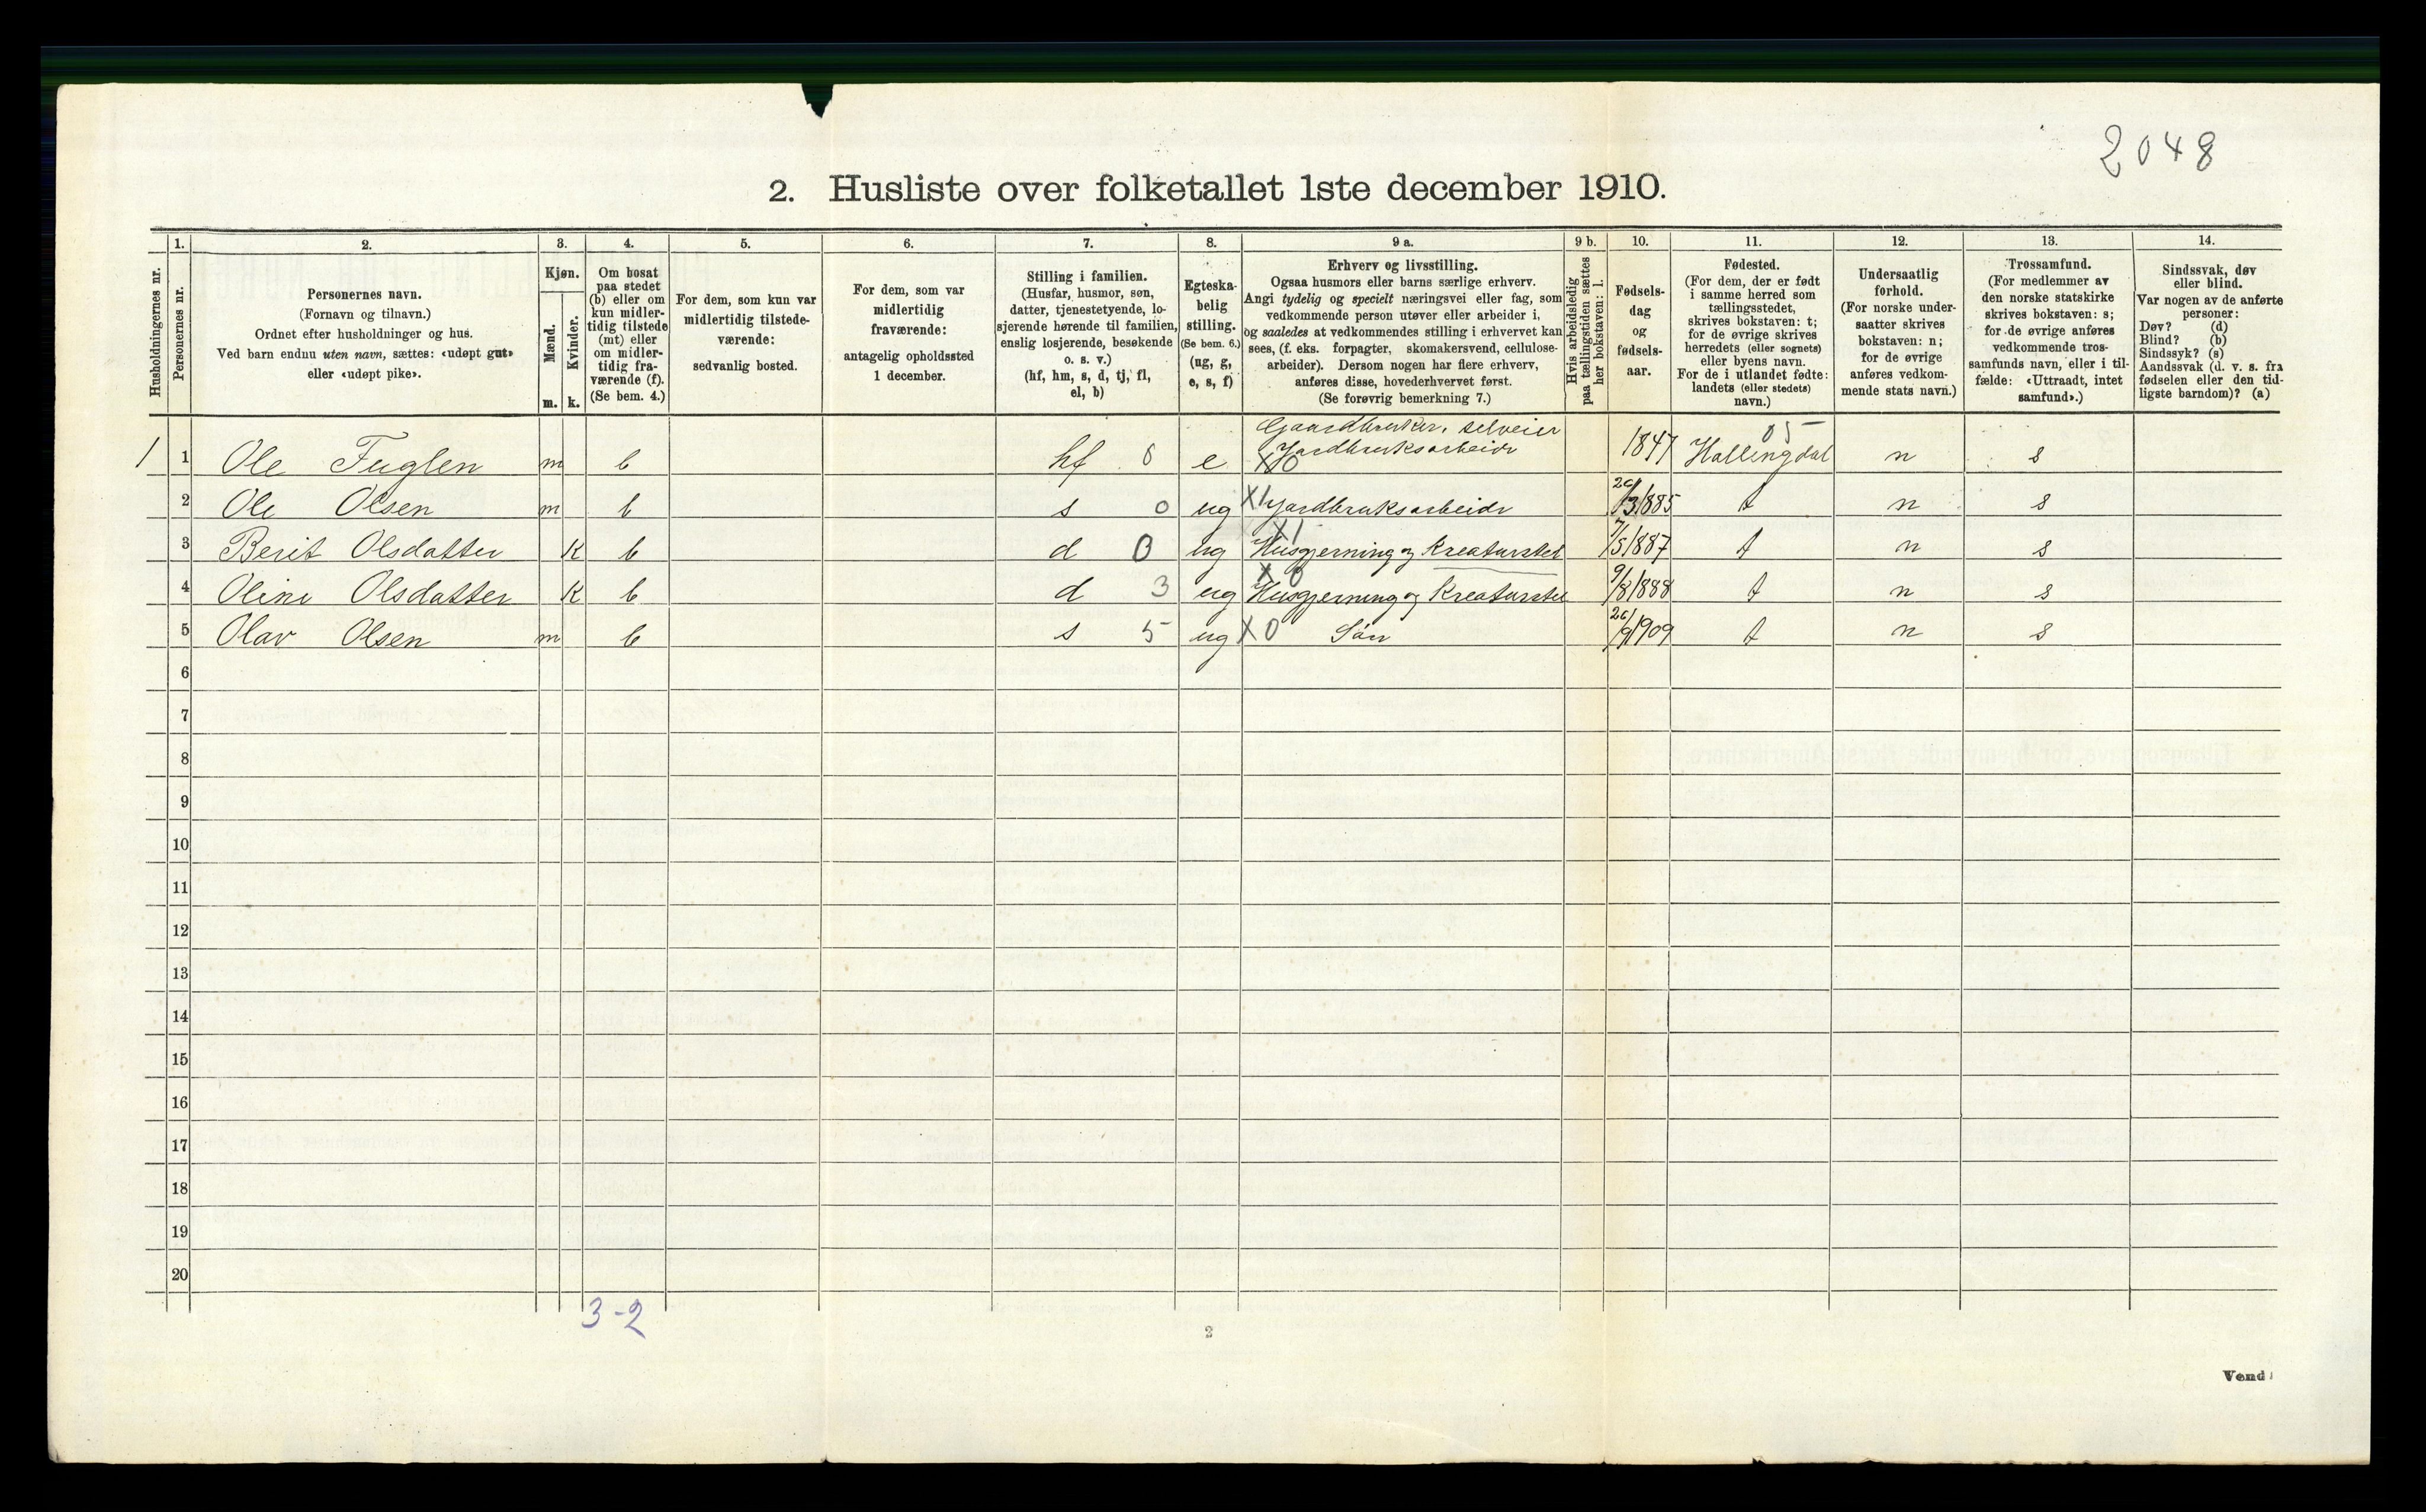 2048
2. Husliste over folketallet 1ste december 1910.
Husholdningernes nr.
1.
Personernes nr.
2.
Personernes navn.
(Fornavn og tilnavn.)
Ordnet efter husholdninger og hus.
Ved barn endnu uten navn, sættes: «udøpt gut»
eller «udøpt pike».
3.
Kjøn.
Mænd.
Kvinder.
m. k.
4.
Om bosat
paa stedet
(b) eller om
kun midler-
tidig tilstede
(mt) eller
om midler-
tidig fra-
værende (f).
(Se bem. 4.)
5.
For dem, som kun var
midlertidig tilstede-
værende:
sedvanlig bosted.
6.
For dem, som var
midlertidig
fraværende:
antagelig opholdssted
1 december.
7.
Stilling i familien.
(Husfar, husmor, søn,
datter, tjenestetyende, lo-
sjerende hørende til familien,
enslig losjerende, besøkende
o. s. v.)
(hf, hm, s, d, tj, fl,
el, b)
8.
Egteska-
belig
stilling.
(Se bem. 6.)
(ug, g,
e, s, f)
9 a.
Erhverv og livsstilling.
Ogsaa husmors eller barns særlige erhverv.
Angi tydelig og specielt næringsvei eller fag, som
vedkommende person utøver eller arbeider i,
og saaledes at vedkommendes stilling i erhvervet kan
sees, (f. eks. forpagter, skomakersvend, cellulose-
arbeider). Dersom nogen har flere erhverv,
anføres disse, hovederhvervet først.
(Se forøvrig bemerkning 7.)
9 b.
Hvis arbeidsledig
paa tællingstiden sættes
her bokstaven: l.
10.
Fødsels-
dag
og
fødsels-
aar.
11.
Fødested.
(For dem, der er født
i samme herred som
tællingsstedet,
skrives bokstaven: t;
for de øvrige skrives
herredets (eller sognets)
eller byens navn.
For de i utlandet fødte:
landets (eller stedets)
navn.)
12.
Undersaatlig
forhold.
(For norske under-
saatter skrives
bokstaven: n;
for de øvrige
anføres vedkom-
mende stats navn.)
13.
Trossamfund.
(For medlemmer av
den norske statskirke
skrives bokstaven: s;
for de øvrige anføres
vedkommende tros-
samfunds navn, eller i til-
fælde: «Uttraadt, intet
samfund».)
14.
Sindssvak, døv
eller blind.
Var nogen av de anførte
personer:
Døv? (d)
Blind? (b)
Sindssyk? (s)
Aandssvak (d. v. s. fra
fødselen eller den tid-
ligste barndom)? (a)
Gaardbruker, selveier 05
1 1 Ole Fuglen m b hf 0 e X0 Jordbruksarbeide 1847 Hallingdal n s
2 Ole Olsen m b s 0 ug X1 Jordbruksarbeide /3 1885 t n s
X1
3 Berit Olsdatter K b d 0 ug Husgjerning og Kreaturstel 7/5 1887 t n s
X 0
4 Oline Olsdatter K b d 3 ug Husgjerning og Kreaturstel 9/8 1888 t n s
5 Olav Olsen m b s 5 ug X 0 Søn /9 1909 t n s
6
7
8
9
10
11
12
13
14
15
16
17
18
19
20
3-2
2
Vend